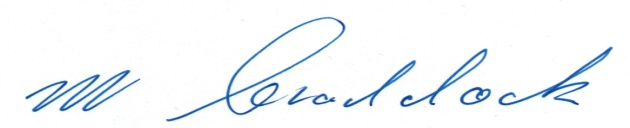 M Craddock